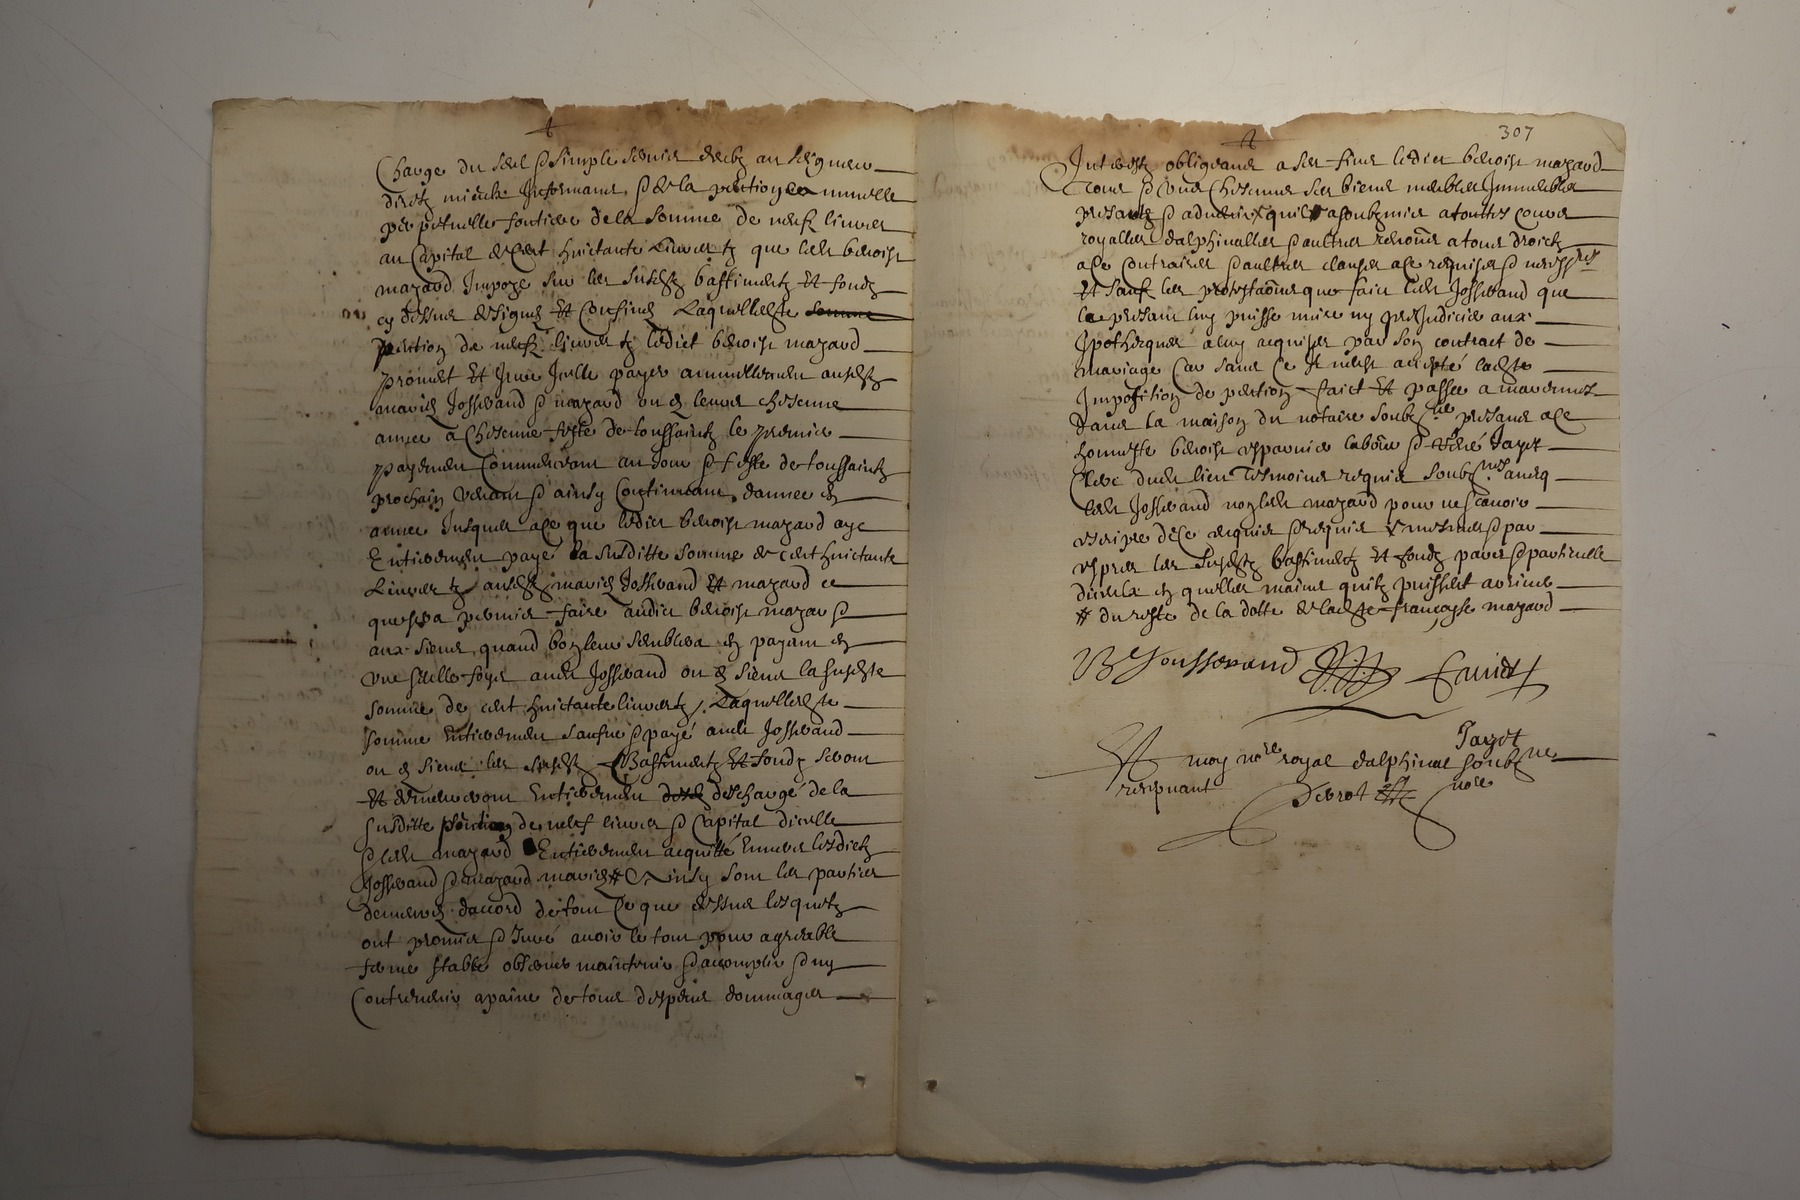 Charge du seel & simple servis deubz au seigneur
directz mieulx Informant, & de la pention annuelle
perpetuelle fontiere de la somme de neufz livres
au Capital de Cent huictante Livres tz que ledt benoist
mazard Impoze sur les susdtz bastimentz Et fondz
cy dessus designes Et Confines Laquelle dte somme
pention de neufz livres tz ledict benoist mazard
promet Et Jure Jcelle payer annuellement ausdtz
maries Josserand & mazard ou es leurs chascune
annee a Chascune feste de toussaintz le premier
payement Commencant au Jour & feste de toussaintz
prochain venant & ainsy Continuant dannee en
annee Jusques a ce que ledict benoist mazard aye
Entierement payé la susditte somme de cent huictante
Livres tz ausdtz maries Josserand Et mazard ce
que sera permis faire audict benoist mazard &
aux siens, quand bon leur semblera en payant en
une seulle foys audt Josserand ou es siens la susdte
somme de cent huictante livres tz, Laquelle dte
somme Entierement & payé audt Josserand
ou es siens les susdtz Bastimentz Et fondz seront
Et demeureront Entierement deschargé de la
susditte pention de neuf livres & Capital dicelle
& ledt mazard Entierement acquitté Envers lesdictz
Josserand & mazard maries # Ainsy sont les parties
demeures daccord de tout Ce que dessus lesquelz
ont promis & Juré avoir le tout pour agreable
ferme stable observer maintenir & accomplir & ny
Contrevenir a paine de tous despens dommages
307
Interestz obligeant a ses fins ledict benoist mazard
tous & uns Chascuns ses biens meubles Jmmeubles
presantz & advenir quil a soubzmis a touttes Cours
royalles dalphinalles & aultres renoncé a tous droictz
a ce Contraires & aultres clauses a ce requises & necessres
Et sauf les protestaons que faict ledt Josserand que
le presant luy puisse nuire ny prejudicier aux
Jpothecques a luy acquises par son contract de
mariage Car sans Ce Jl neust accepté ladte
Imposition de pention faict Et passee a
Dans la maison du notaire soubzne presans a ce
honneste benoist labour &
Clerc dudt lieu tesmoins requis soubznes avecq
ledt Josserand non ledt mazard pour ne scavoir
escripre de ce enquis & requis
les susdtz bastimentz Et fondz
puissent
# du reste de la dotte de ladte francoyse mazard
B Jousserand
Jayet
Et moy nore royal dalphinal soubzne
recepvant
nore